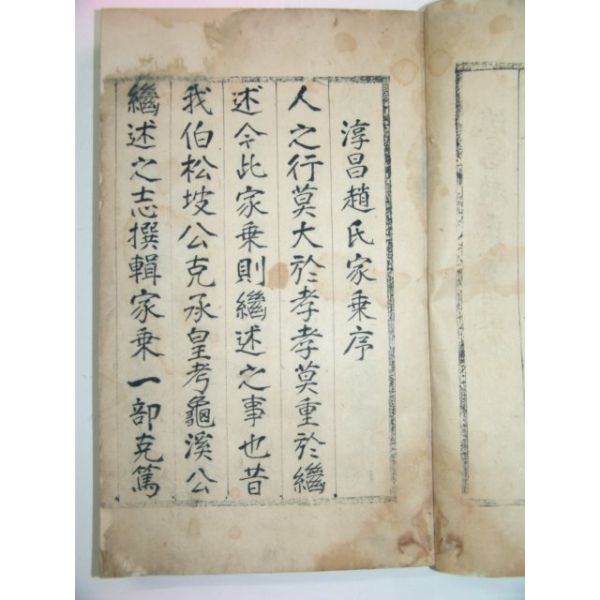 淳昌趙氏家乗序
人之行莫大於孝孝莫重於繼
述今此家乗則繼述之事也昔
我伯松坡公克承皇考龜溪公
繼述之志撰輯家乗一部克篤